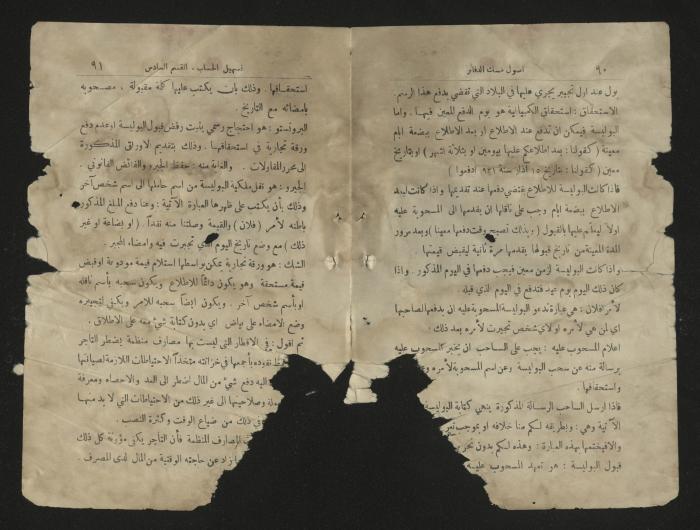 ٩٠ اصول مسك الدفاتر
بول عند اول تجيير يجري عليها في البلاد التي تقضي بدفع هذا الرسم
الاستحقاق : استحقاق الكمبيالة هو يوم الدفع المعين فيها . واما
البوليسة فيمكن ان تدفع عند الاطلاع او بعد الاطلاع ببضعة ايام
معينة ( كقولنا : بعد اطلاعكم عليها بيومين او بثلاثة اشهر ) او بتاريخ
معين ( كقولنا : بتاريخ ١٥ آذار سنة ٩٢١ ادفعوا )
فاذا كانت البوليسة للاطلاع فتقتضي دفعها عند تقديمها واذا كانت لبعد
الاطلاع ببضعة ايام وجب على ناقلها ان يقدمها الى المسحوبة عليه
اولاً ليعلّم عليها بالقبول ( وبذلك تصبح وقت دفعها معيناً ) وبعد مرور
المدة المعينة من تاريخ قبولها يقدمها مرة ثانية ليقبض قيمتها
واذا كانت البوليسة لزمن معين فيجب دفعها في اليوم المذكور . واذا
كان ذلك اليوم يوم عيد فتدفع في اليوم الذي قبله .
لأمر فلان : هي عبارة تدعو البوليسة المسحوبة عليه ان يدفعها لصاحبها
اي لمن هي لأمره او لاي شخص تجيرت لأمره بعد ذلك
اعلام المسحوب عليه : يجب على الساحب ان يخبر المسحوب عليه
برسالة منه عن سحب البوليسة وعن اسم المسحوبة لأمره
واستحقاقها .
فاذا ارسل الساحب الرسالة المذكورة ينهي كتابة البوليسة
الآتية وهي : وبطريقه لكم منا خلافه او بموجب
والا فيختمها بهذه العبارة : وهذه لكم بدون
قبول البوليسة : هو تعهد المسحوب عليه
تسهيل الحساب . القسم السادس ٩١
استحقاقها . وذلك بأن يكتب عليها كلمة مقبولة ، مصحوبة
بامضائه مع التاريخ .
البروتستو : هو احتجاج رسمي يثبت رفض قبول البوليسة او عدم دفع
ورقة تجارية في استحقاقها . وذلك بتقديم الاوراق المذكورة
الى محرر المقاولات . والغاية منه : حفظ الجيرو والفائض القانوني .
الجيرو : هو نقل ملكية البوليسة من اسم حاملها الى اسم شخص آخر
وذلك بأن يكتب على ظهرها العبارة الآتية : وعنا دفع المبلغ المذكور
باطنه لأمر ( فلان ) والقيمة وصلتنا منه نقداً . ( او بضاعة او غير
ذلك ) مع وضع تاريخ اليوم الذي تجيرت فيه وامضاء المجير .
الشك : هو ورقة تجارية يمكن بواسطتها استلام قيمة مودوعة او قبض
قيمة مستحقة وهو يكون دائماً للاطلاع ويكون سحبه بأسم ناقله
او بأسم شخص آخر . ويكون ايضاً سحبه للامر ويكفي لتجييره
وضع الامضاء على بياض اي بدون كتابة شيء معه على الاطلاق .
ثم اقول : في الاقطار التي ليست بها مصارف منظمة يضطر التاجر
نقوده بأجمعها في خزانته متخذاً الاحتياطات اللازمة لصيانتها
اليه دفع شيء من المال اضطر الى العد والاحصاء ومعرفة
وصلاحيتها الى غير ذلك من الاحتياطات التي لا بد منها
في ذلك من ضياع الوقت وكثرة التعب .
المصارف المنظمة فأن التاجر يكفى مؤونة كل ذلك
زاد عن حاجته الوقتية من المال لدى المصرف .